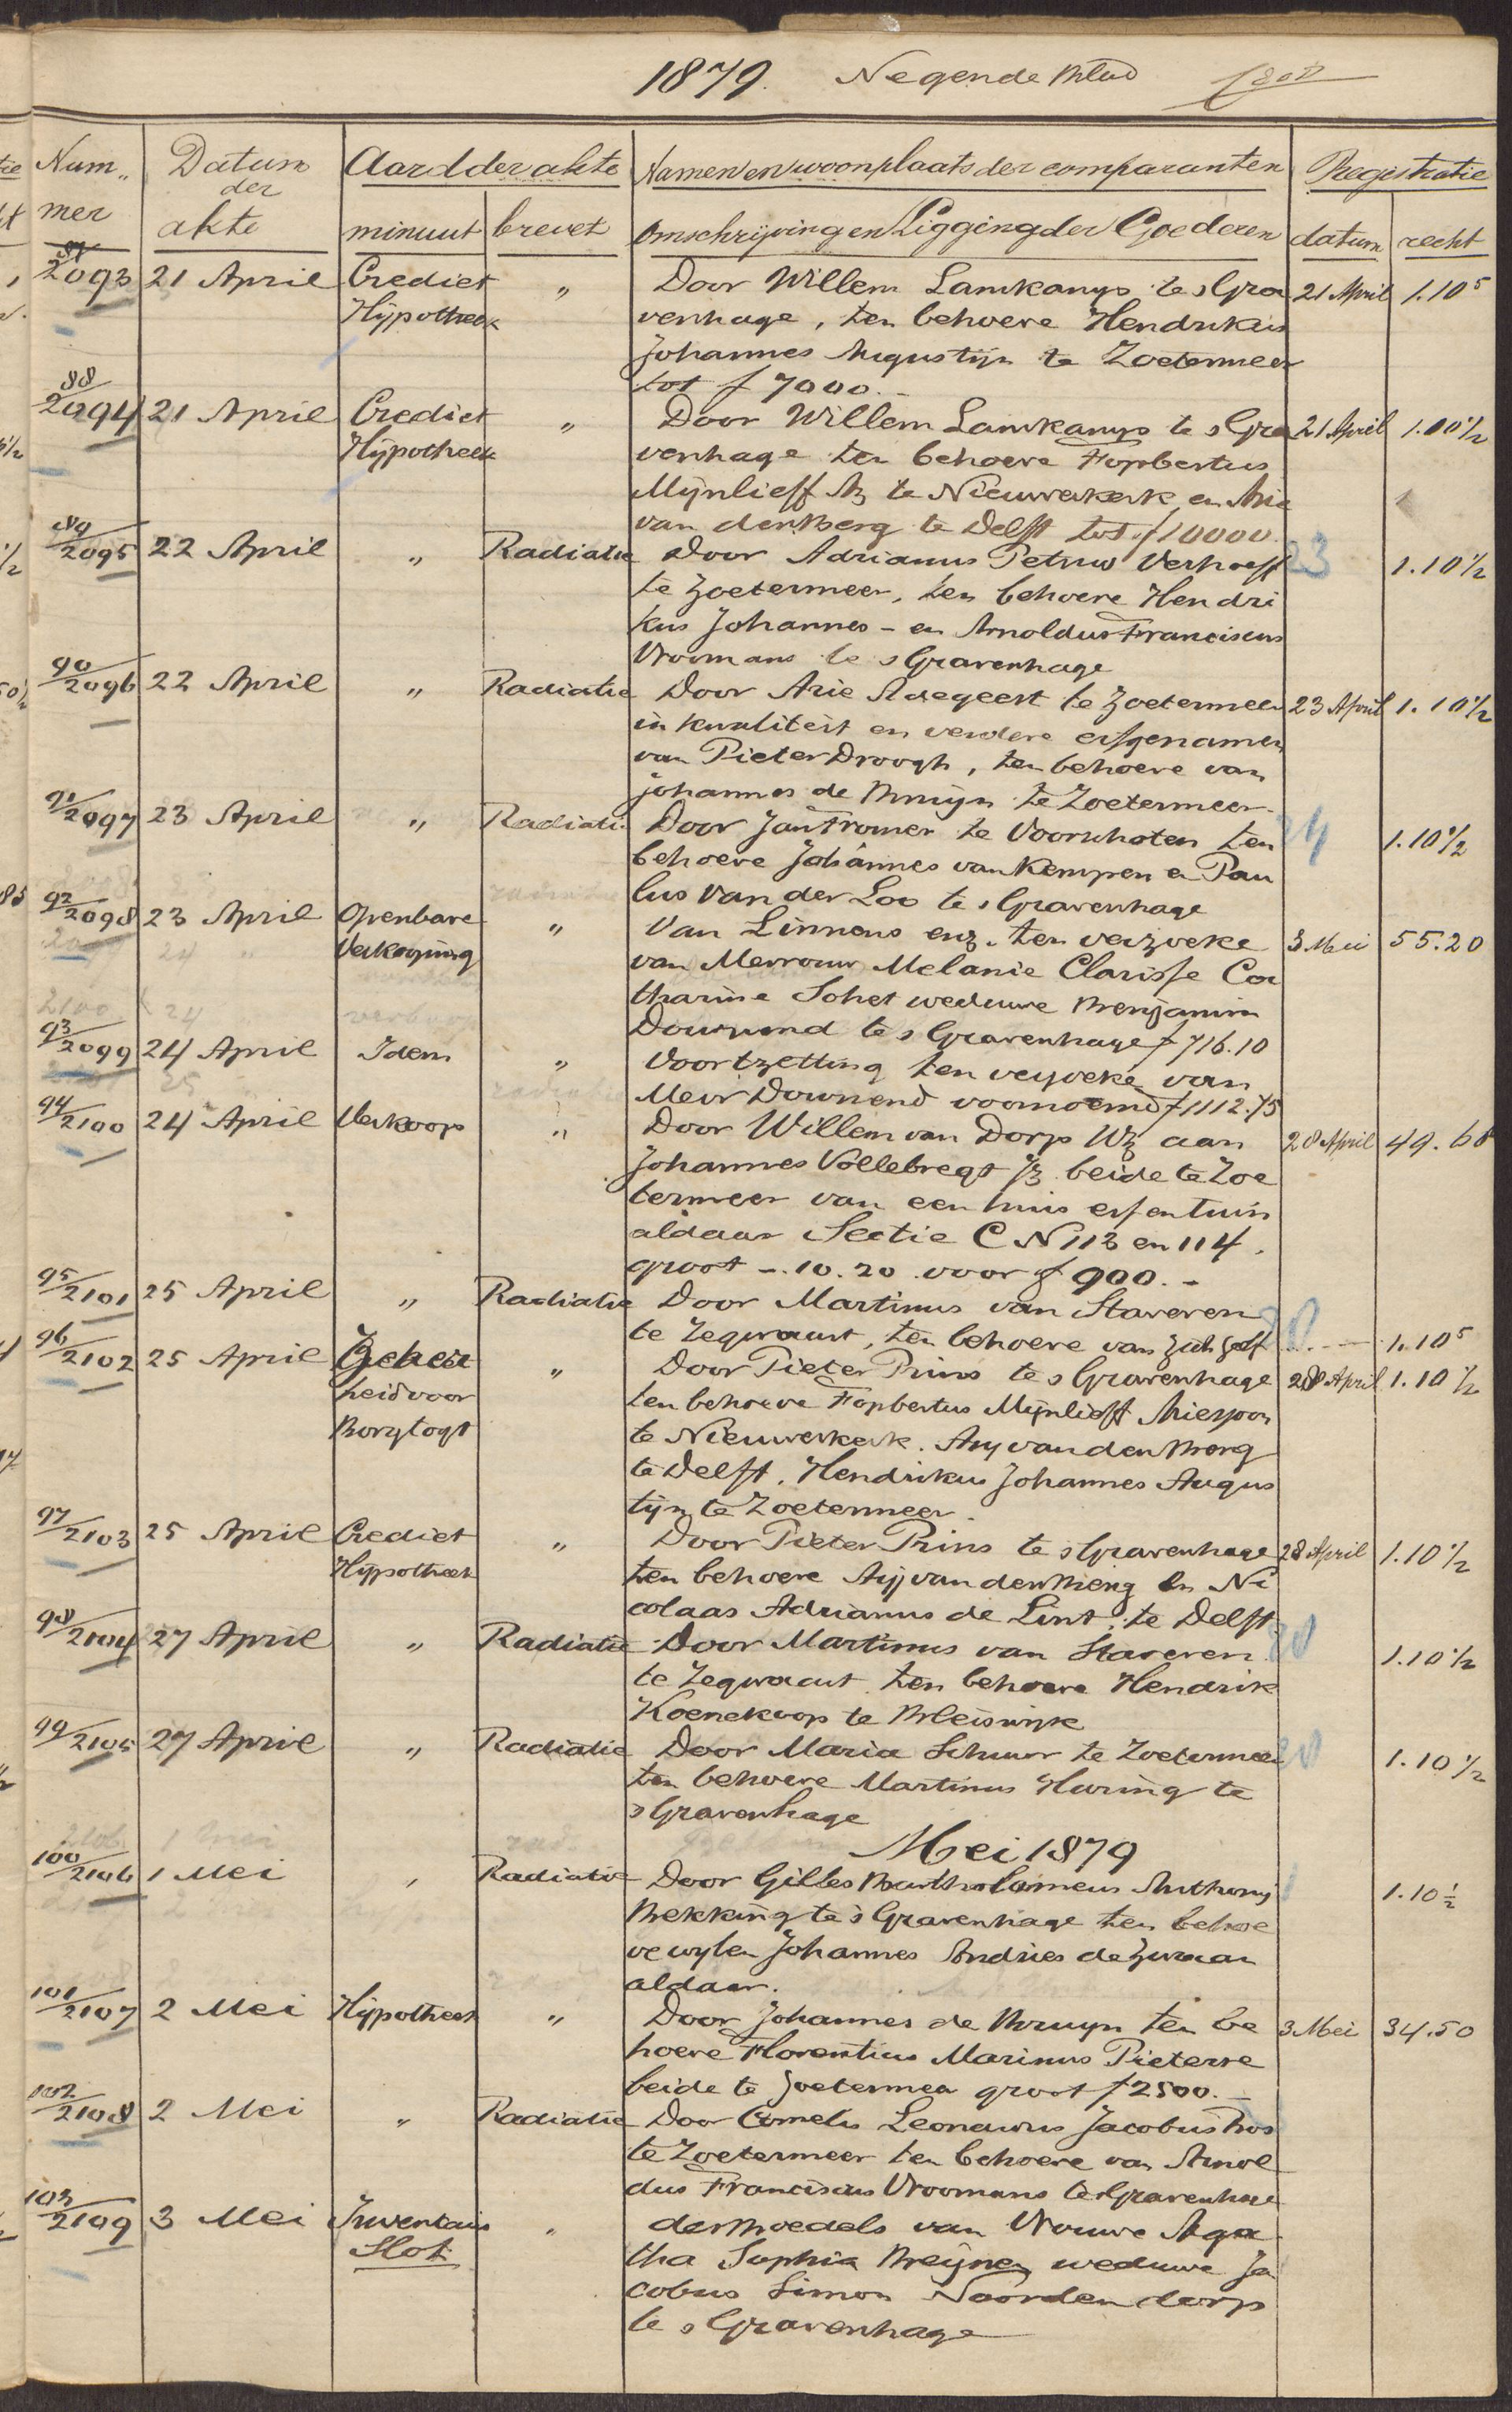 1879. Negende Blad
Num„ Datum Aard der akte Namen en woonplaats der comparanten Registratie
mer der akte minuut brevet omschrijving en Ligging der Goederen datum recht
87/2093 21 April Crediet „ Door Willem Lamkamp te sGra 21 April 1.10⁵
Hypotheek venhage, ten behoeve Hendrikus
Johannes Augustijn te Zoetermeer
tot ƒ 7000.-
88/2094 21 April Crediet „ Door Willem Lamkamp te sGra 21 April 1.10½
Hypotheek venhage ten behoeve Fopbertus
Mijnlieff Az te Nieuwerkerk en Arie
van den Berg te Delft tot ƒ 10000.
89/2095 22 April „ Radiatie Door Adrianus Petrus Verhoeff 23 1.10½
te Zoetermeer, ten behoeve Hendri
kus Johannes - en Arnoldus Franciscus
Vroomans te sGravenhage
90/2096 22 April „ Radiatie Door Arie Adegeest te Zoetermeer 23 April 1.10½
in kwaliteit en verdere erfgenamen
van Pieter Droogh, ten behoeve van
Johannes de Bruijn te Zoetermeer
91/2097 23 April „ Radiatie Door Jan Fromer te Voorschoten ten 24 1.10½
behoeve Johannes van Kempen en Pau
lus van der Loo te sGravenhage
92/2098 23 April Openbare „ Van Linnens enz. ten verzoeke 3 Mei 55.20
Verkooping van Mevrouw Melanie Clarisse Ca
tharine Sohet weduwe Benjamin
Dounend te sGravenhage ƒ 716.10
93/2099 24 April Idem „ Voortzetting ten verzoeke van
Mevr Dounend voornoemd ƒ 1112.75
94/2100 24 April Verkoop „ Door Willem van Dorp Wz aan 28 April 49.68
Johannes Vollebregt Jz beide te Zoe
termeer van een huis erf en tuin
aldaar Sectie C N 113 en 114.
groot -.10.20 voor ƒ 900.-
95/2101 25 April „ Radiatie Door Martinus van Staveren
te Zegwaart, ten behoeve van zich zelf 1.10⁵
96/2102 25 April Zeker „ Door Pieter Prins te sGravenhage 28 April 1.10½
heid voor ten behoeve Fopbertus Mijnlieff Arieszoon
Borgtogt te Nieuwerkerk. Ary van den Berg
te Delft, Hendrikus Johannes Augus
tijn te Zoetermeer.
97/2103 25 April Crediet „ Door Pieter Prins te sGravenhage 28 April 1.10½
Hypotheek ten behoeve Arij van den Berg en Ni
colaas Adrianus de Lint te Delft
98/2104 27 April „ Radiatie Door Martinus van Staveren 1.10½
te Zegwaart ten behoeve Hendrik
Koenekoop te Bleiswijk
99/2105 27 April „ Radiatie Door Maria Schuur te Zoetermeer 1.10½
ten behoeve Martinus Haring te
sGravenhage
Mei 1879
100/2106 1 Mei „ Radiatie Door Gilles Bartholomeus Anthonij 1.10½
Bekking te sGravenhage ten behoe
ve wylen Johannes Andries de Zwaan
aldaar.
101/2107 2 Mei Hypotheek „ Door Johannes de Bruyn ten be 3 Mei 34.50
hoeve Florentius Marinus Pieterse
beide te Zoetermeer groot ƒ 2500.-
102/2108 2 Mei „ Radiatie Door Cornelis Leonardus Jacobus Bos
te Zoetermeer ten behoeve van Arnol
dus Franciscus Vroomans te sGravenhage
103/2109 3 Mei Inventaris „ des Boedels van Vrouwe Aga
Slot tha Sophia Breijnen weduwe Ja
cobus Simon Noordendorp
te sGravenhage